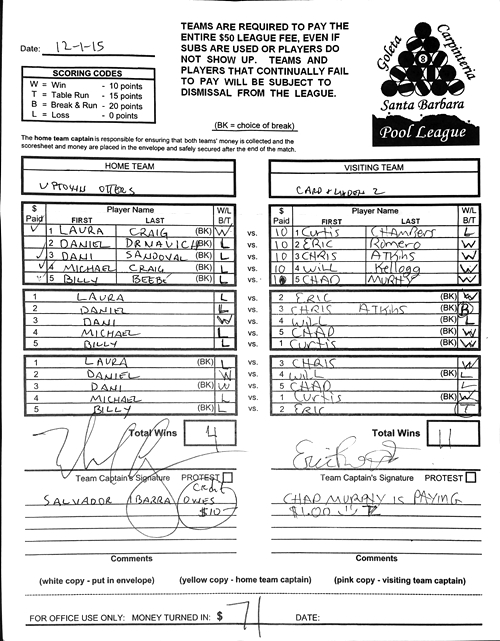 TEAMS ARE REQUIRED TO PAY THE
ENTIRE $50 LEAGUE FEE, EVEN IF
SUBS ARE USED OR PLAYERS DO
NOT SHOW UP. TEAMS AND
PLAYERS THAT CONTINUALLY FAIL
TO PAY WILL BE SUBJECT TO
DISMISSAL FROM THE LEAGUE.
Date: 12-1-15
SCORING CODES
W = Win - 10 points
T = Table Run - 15 points
B = Break & Run - 20 points
L = Loss - 0 points
Goleta Carpinteria
8
Santa Barbara
Pool League
(BK = choice of break)
The home team captain is responsible for ensuring that both teams' money is collected and the
scoresheet and money are placed in the envelope and safely secured after the end of the match.
HOME TEAM VISITING TEAM
UPTOWN OTTERS 2
$ Paid Player Name FIRST LAST W/L B/T $ Paid Player Name FIRST LAST W/L B/T
1 LAURA CRAIG (BK) W vs. 10 1 CURTIS CHAMBERS L
2 DANIEL DRNAVICH (BK) L vs. 10 2 ERIC ROMERO W
3 DANI SANDOVAL (BK) L vs. 10 3 CHRIS ATKINS W
4 MICHAEL CRAIG (BK) L vs. 10 4 WILL KELLOGG W
5 BILLY BEEBE (BK) L vs. 5 CHAD MURPHY W
1 LAURA L vs. 2 ERIC (BK) W
2 DANIEL L vs. 3 CHRIS ATKINS (BK) B
3 DANI W vs. 4 WILL (BK) L
4 MICHAEL L vs. 5 CHAD (BK) W
5 BILLY L vs. 1 CURTIS (BK) W
1 LAURA (BK) L vs. 3 CHRIS W
2 DANIEL W vs. 4 WILL (BK) L
3 DANI (BK) W vs. 5 CHAD L
4 MICHAEL L vs. 1 CURTIS (BK) W
5 BILLY (BK) L vs. 2 ERIC
Total Wins 4 Total Wins 11
Team Captain's Signature PROTEST Team Captain's Signature PROTEST
SALVADOR IBARRA OWES
$10
CHAD MURPHY IS PAYING
$1.00
Comments Comments
(white copy - put in envelope) (yellow copy - home team captain) (pink copy - visiting team captain)
FOR OFFICE USE ONLY: MONEY TURNED IN: $ 71 DATE: